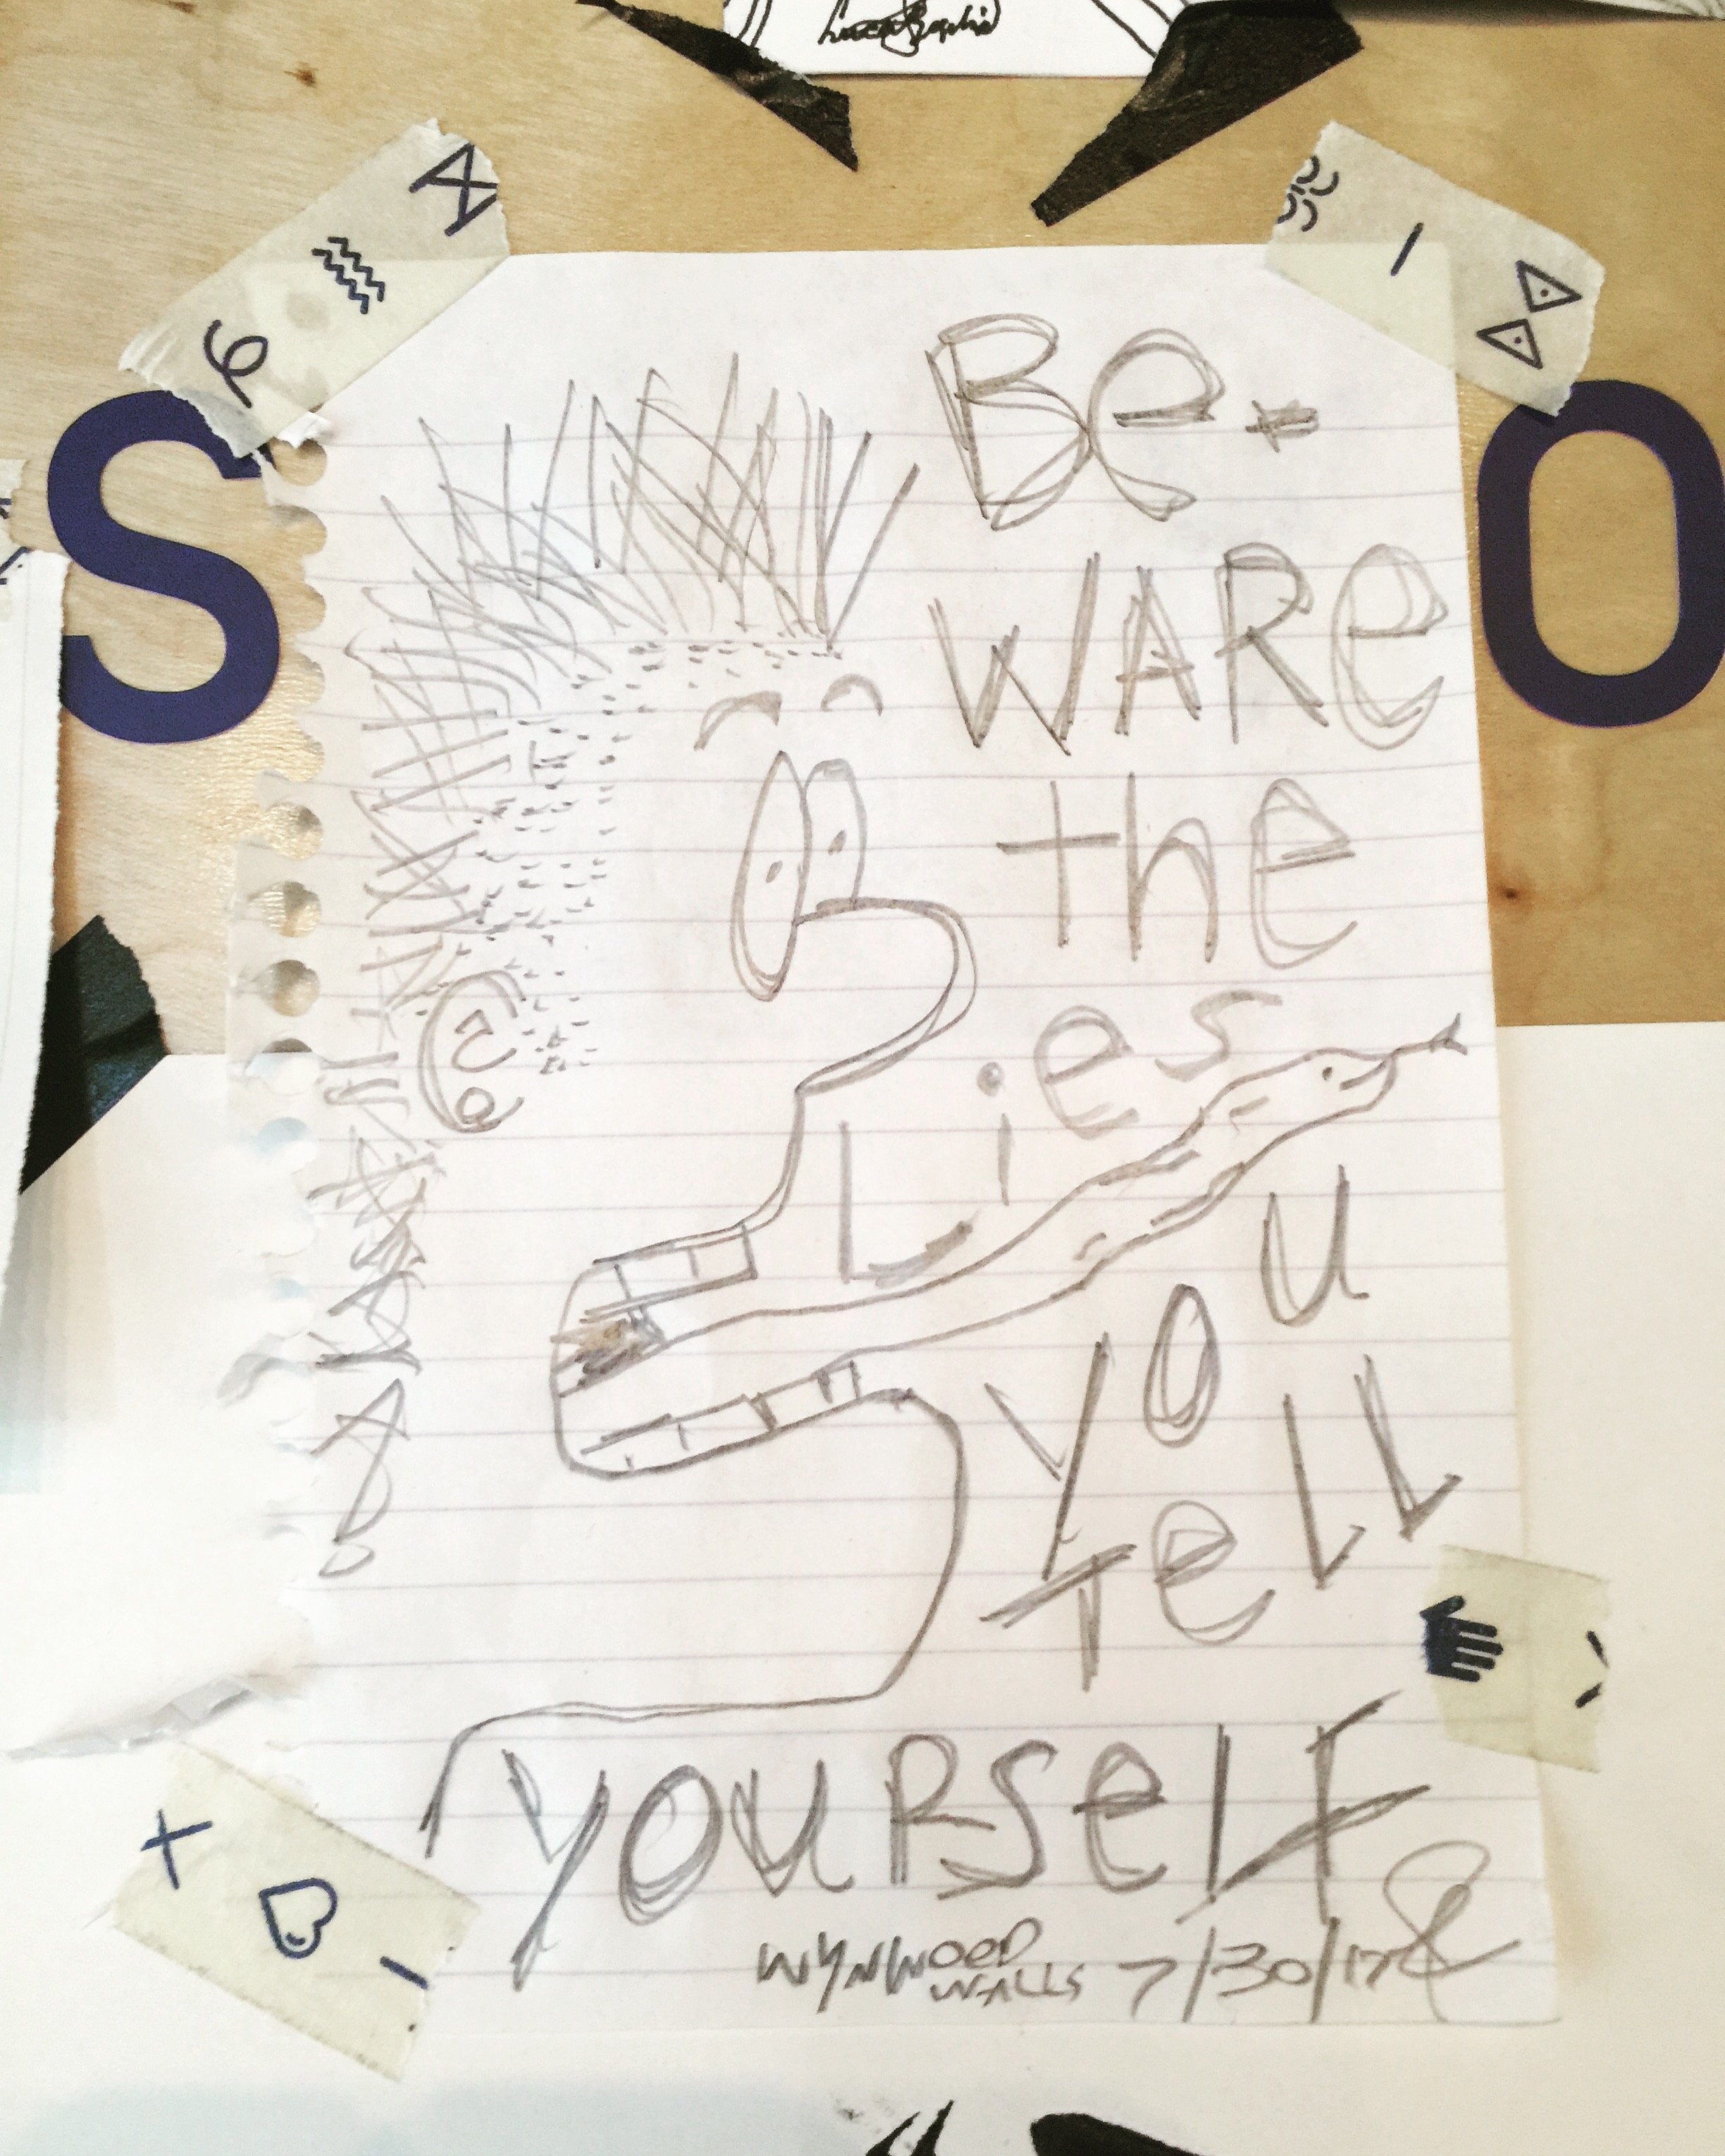 S
O
Be-
WARe
the
Lies
you
Tell
YOURSelF
WYNWOOD
WALLS 7/30/17